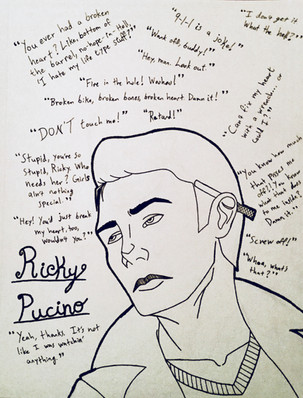 "You ever had a broken
heart? Like bottom of
the barrel, no-hope-in-Hell,
'I hate my life' type stuff?"
"9-1-1 is a joke!"
"I don't get it
What the hell?"
"What off, buddy!"
"Hey, man. Look out."
"Fire in the hole! Wahoo!"
"Broken bike, broken bones, broken heart. Damn it!"
"Cant fix my heart
with a wrench... or
could I?"
"DON'T touch me!"
"Retard!"
"Stupid, you're so
stupid, Ricky. Who
needs her? Girls
ain't nothing
special."
"You know how much
that pisses me
off? You know
what that does
to me inside?
Damn it."
"Hey! You'd just break
my heart, too,
wouldn't you?"
"Screw off!"
"Whoa, what's
that?"
Ricky
Pucino
"Yeah, thanks. It's not
like I was watchin'
anything."